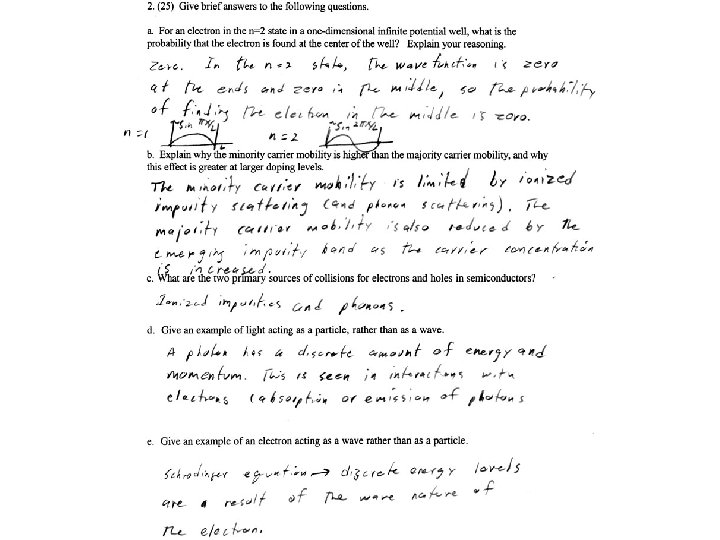 2. (25) Give brief answers to the following questions.
a. For an electron in the n=2 state in a one-dimensional infinite potential well, what is the
probability that the electron is found at the center of the well? Explain your reasoning.
Zero. In the n=2 state, the wave function is zero
at the ends and zero in the middle, so the probability
of finding the electron in the middle is zero.
n=1 ~sin πx/L n=2 ~sin 2πx/L
b. Explain why the minority carrier mobility is higher than the majority carrier mobility, and why
this effect is greater at larger doping levels.
The minority carrier mobility is limited by ionized
impurity scattering (and phonon scattering). The
majority carrier mobility is also reduced by the
emerging impurity band as the carrier concentration
is increased.
c. What are the two primary sources of collisions for electrons and holes in semiconductors?
Ionized impurities and phonons.
d. Give an example of light acting as a particle, rather than as a wave.
A photon has a discrete amount of energy and
momentum. This is seen in interactions with
electrons (absorption or emission of photons
e. Give an example of an electron acting as a wave rather than as a particle.
Schrodinger equation → discrete energy levels
are a result of the wave nature of
the electron.